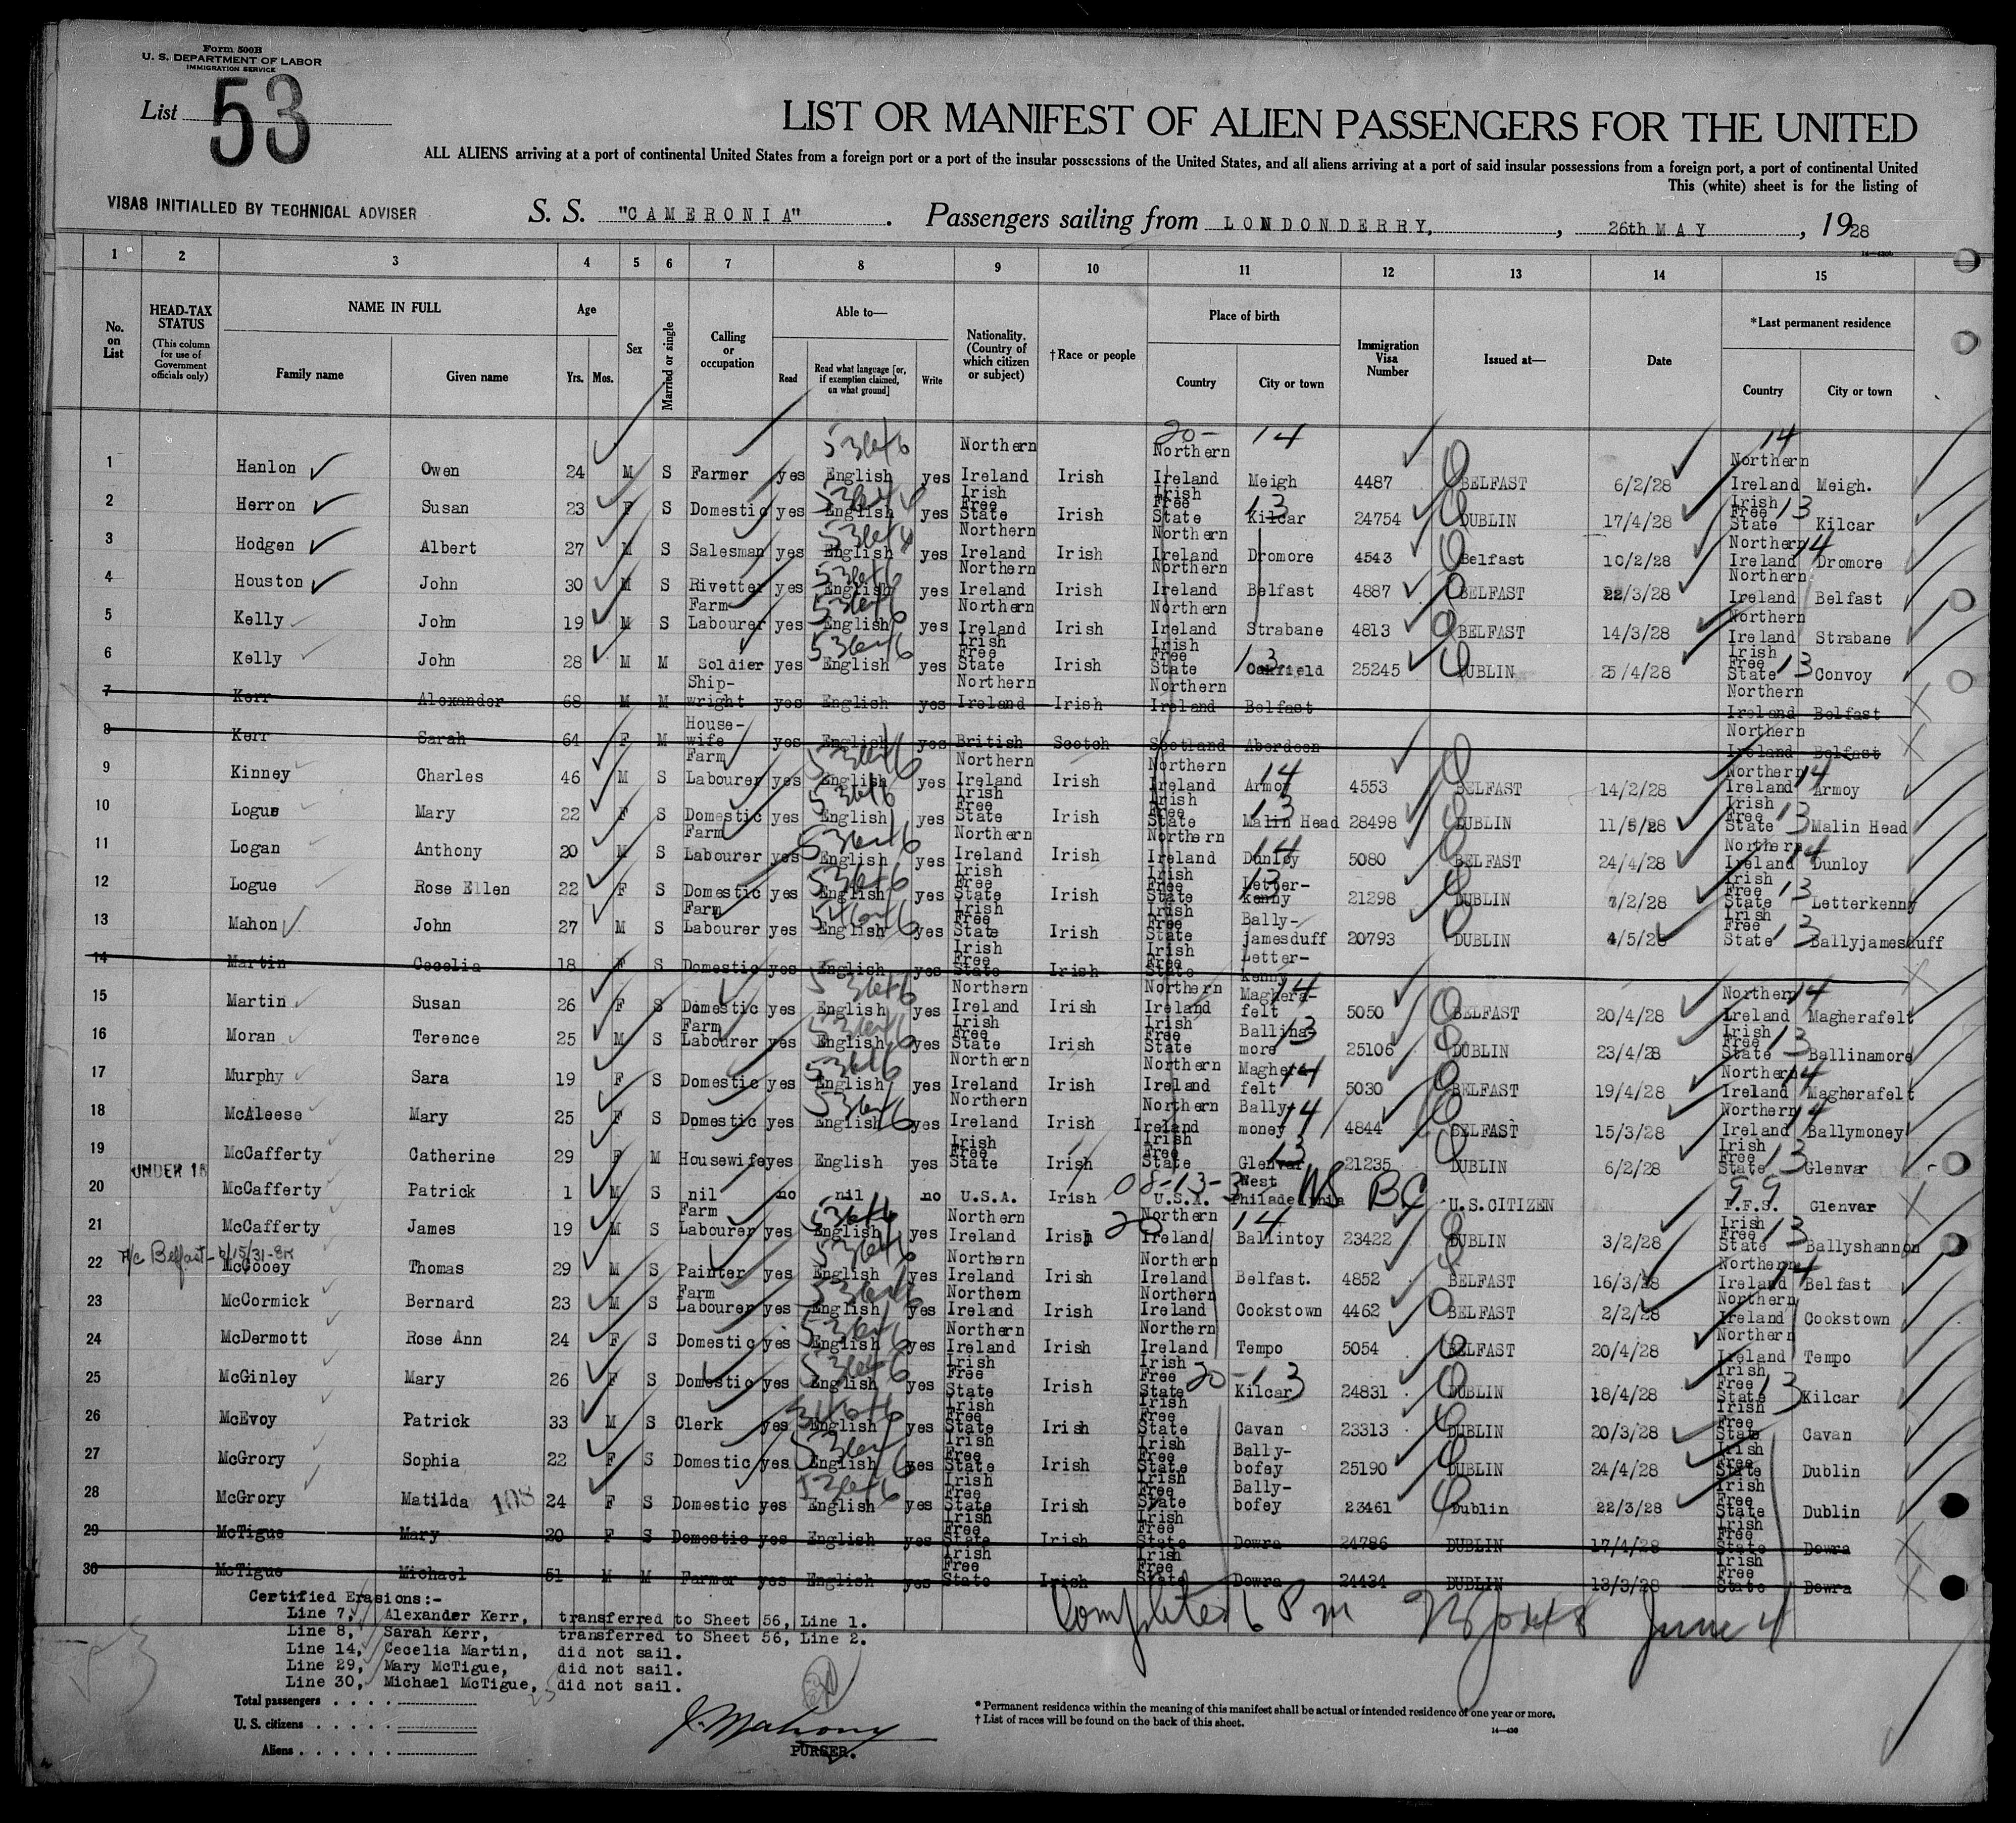 Form 500B
U. S. DEPARTMENT OF LABOR
IMMIGRATION SERVICE
List 53
LIST OR MANIFEST OF ALIEN PASSENGERS FOR THE UNITED
ALL ALIENS arriving at a port of continental United States from a foreign port or a port of the insular possessions of the United States, and all aliens arriving at a port of said insular possessions from a foreign port, a port of continental United
This (white) sheet is for the listing of
VISAS INITIALLED BY TECHNICAL ADVISER
S. S. "CAMERONIA". Passengers sailing from LONDONDERRY, , 26th MAY , 1928
14—430b
1 2 3 4 5 6 7 8 9 10 11 12 13 14 15
No. on List
HEAD-TAX STATUS (This column for use of Government officials only)
NAME IN FULL Family name Given name
Age Yrs. Mos.
Sex
Married or single
Calling or occupation
Able to— Read Read what language [or, if exemption claimed, on what ground] Write
Nationality. (Country of which citizen or subject)
†Race or people
Place of birth Country City or town
Immigration Visa Number
Issued at—
Date
*Last permanent residence Country City or town
1 Hanlon Owen 24 M S Farmer yes English yes Northern Ireland Irish Northern Ireland Meigh 4487 BELFAST 6/2/28 Northern Ireland Meigh.
2 Herron Susan 23 F S Domestic yes English yes Irish Free State Irish Irish Free State Kilcar 24754 DUBLIN 17/4/28 Irish Free State Kilcar
3 Hodgen Albert 27 M S Salesman yes English yes Northern Ireland Irish Northern Ireland Dromore 4543 Belfast 10/2/28 Northern Ireland Dromore
4 Houston John 30 M S Rivetter yes English yes Northern Ireland Irish Northern Ireland Belfast 4887 BELFAST 22/3/28 Northern Ireland Belfast
5 Kelly John 19 M S Farm Labourer yes English yes Northern Ireland Irish Northern Ireland Strabane 4813 BELFAST 14/3/28 Northern Ireland Strabane
6 Kelly John 28 M M Soldier yes English yes Irish Free State Irish Irish Free State 25245 DUBLIN 25/4/28 Irish Free State Convoy
7 Kerr Alexander 68 M M Ship-wright yes English yes Northern Ireland Irish Northern Ireland Belfast Northern Ireland Belfast
8 Kerr Sarah 64 F M House-wife yes English yes British Scotch Scotland Aberdeen Northern Ireland Belfast
9 Kinney Charles 46 M S Farm Labourer yes English yes Northern Ireland Irish Northern Ireland Armoy 4553 BELFAST 14/2/28 Northern Ireland Armoy
10 Logue Mary 22 F S Domestic yes English yes Irish Free State Irish Irish Free State Malin Head 28498 DUBLIN 11/5/28 Irish Free State Malin Head
11 Logan Anthony 20 M S Farm Labourer yes English yes Northern Ireland Irish Northern Ireland Dunloy 5080 BELFAST 24/4/28 Northern Ireland Dunloy
12 Logue Rose Ellen 22 F S Domestic yes English yes Irish Free State Irish Irish Free State Letter-kenny 21298 DUBLIN 7/2/28 Irish Free State Letterkenny
13 Mahon John 27 M S Farm Labourer yes English yes Irish Free State Irish Irish Free State Bally-jamesduff 20793 DUBLIN 4/5/28 Irish Free State Ballyjamesduff
14 Martin Cecelia 18 F S Domestic yes English yes Irish Free State Irish Irish Free State Letter-kenny
15 Martin Susan 26 F S Domestic yes English yes Northern Ireland Irish Northern Ireland Maghera-felt 5050 BELFAST 20/4/28 Northern Ireland Magherafelt
16 Moran Terence 25 M S Farm Labourer yes English yes Irish Free State Irish Irish Free State Ballina-more 25106 DUBLIN 23/4/28 Irish Free State Ballinamore
17 Murphy Sara 19 F S Domestic yes English yes Northern Ireland Irish Northern Ireland Maghera-felt 5030 BELFAST 19/4/28 Northern Ireland Magherafelt
18 McAleese Mary 25 F S Domestic yes English yes Northern Ireland Irish Northern Ireland Bally-money 4844 BELFAST 15/3/28 Northern Ireland Ballymoney
19 McCafferty Catherine 29 F M Housewife yes English yes Irish Free State Irish Irish Free State Glenvar 21235 DUBLIN 6/2/28 Irish Free State Glenvar
20 UNDER 16 McCafferty Patrick 1 M S nil no nil no U.S.A. Irish U.S.A. West Philadelphia U.S.CITIZEN Glenvar
21 McCafferty James 19 M S Farm Labourer yes English yes Northern Ireland Irish Northern Ireland Ballintoy 23422 DUBLIN 3/2/28 Irish Free State Ballyshannon
22 McCooey Thomas 29 M S Painter yes English yes Northern Ireland Irish Northern Ireland Belfast. 4852 BELFAST 16/3/28 Northern Ireland Belfast
23 McCormick Bernard 23 M S Farm Labourer yes English yes Northern Ireland Irish Northern Ireland Cookstown 4462 BELFAST 2/2/28 Northern Ireland Cookstown
24 McDermott Rose Ann 24 F S Domestic yes English yes Northern Ireland Irish Northern Ireland Tempo 5054 BELFAST 20/4/28 Northern Ireland Tempo
25 McGinley Mary 26 F S Domestic yes English yes Irish Free State Irish Irish Free State Kilcar 24831 DUBLIN 18/4/28 Irish Free State Kilcar
26 McEvoy Patrick 33 M S Clerk yes English yes Irish Free State Irish Irish Free State Cavan 23313 DUBLIN 20/3/28 Irish Free State Cavan
27 McGrory Sophia 22 F S Domestic yes English yes Irish Free State Irish Irish Free State Bally-bofey 25190 DUBLIN 24/4/28 Irish Free State Dublin
28 McGrory Matilda 108 24 F S Domestic yes English yes Irish Free State Irish Irish Free State Bally-bofey 23461 Dublin 22/3/28 Irish Free State Dublin
29 McTigue Mary 20 F S Domestic yes English yes Irish Free State Irish Irish Free State Dowra 24786 DUBLIN 17/4/28 Irish Free State Dowra
30 McTigue Michael 51 M M Farmer yes English yes Irish Free State Irish Irish Free State Dowra 24434 DUBLIN 13/3/28 Irish Free State Dowra
Certified Erasions:-
Line 7, Alexander Kerr, transferred to Sheet 56, Line 1.
Line 8, Sarah Kerr, transferred to Sheet 56, Line 2.
Line 14, Cecelia Martin, did not sail.
Line 29, Mary McTigue, did not sail.
Line 30, Michael McTigue, did not sail.
Completed 6 Pm June 4
Total passengers
U. S. citizens
Aliens
J. Mahony
PURSER.
* Permanent residence within the meaning of this manifest shall be actual or intended residence of one year or more.
† List of races will be found on the back of this sheet.
14—430